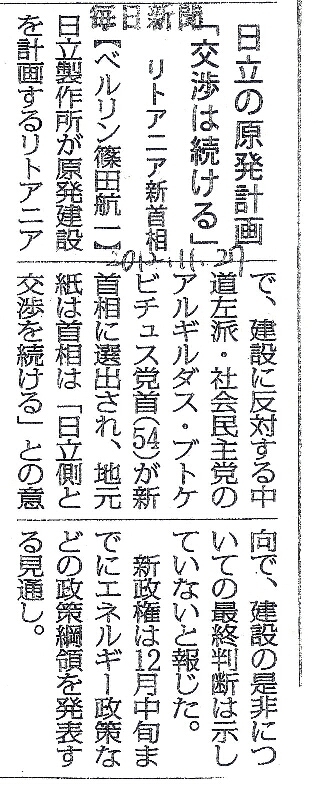 毎日新聞
2012.11.27
日立の原発計画
「交渉は続ける」
リトアニア新首相
【ベルリン篠田航一】
日立製作所が原発建設
を計画するリトアニア
で、建設に反対する中
道左派・社会民主党の
アルギルダス・ブトケ
ビチュス党首(54)が新
首相に選出され、地元
紙は首相は「日立側と
交渉を続ける」との意
向で、建設の是非につ
いての最終判断は示し
ていないと報じた。
新政権は12月中旬ま
でにエネルギー政策な
どの政策綱領を発表す
る見通し。